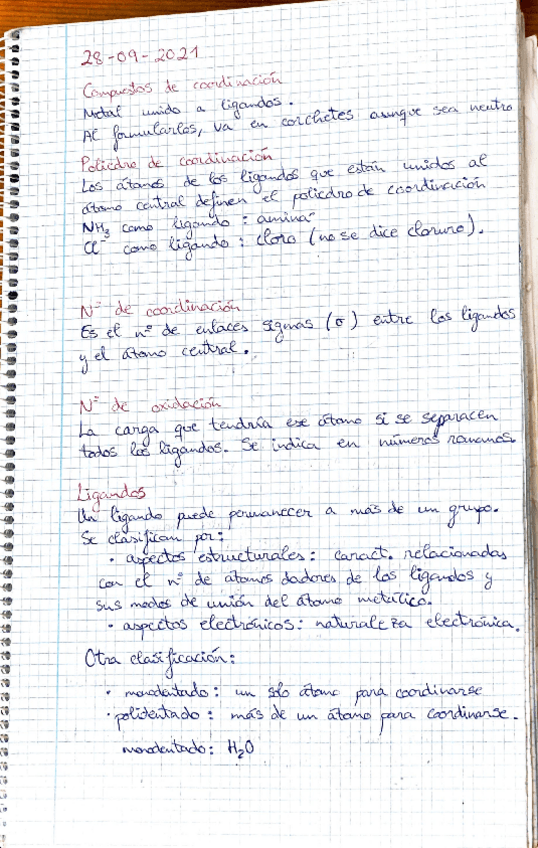 28-09-2021
Compuestos de coordinación
Metal unido a ligandos.
Al formularlos, va en corchetes aunque sea neutro
Poliedro de coordinación
Los átomos de los ligandos que están unidos al
átomo central definen el poliedro de coordinación
NH₃ como ligando: amina
Cl⁻ como ligando: cloro (no se dice cloruro).
Nº de coordinación
Es el nº de enlaces sigmas (σ) entre los ligandos
y el átomo central.
Nº de oxidación
La carga que tendría ese átomo si se separacen
todos los ligandos. Se indica en números romanos.
Ligandos
Un ligando puede permanecer a más de un grupo.
Se clasifican por:
· aspectos estructurales: caract. relacionadas
con el nº de átomos dadores de los ligandos y
sus modos de unión del átomo metálico.
· aspectos electrónicos: naturaleza electrónica.
Otra clasificación:
· monodentado: un solo átomo para coordinarse
· polidentado: más de un átomo para coordinarse.
monodentado: H₂O